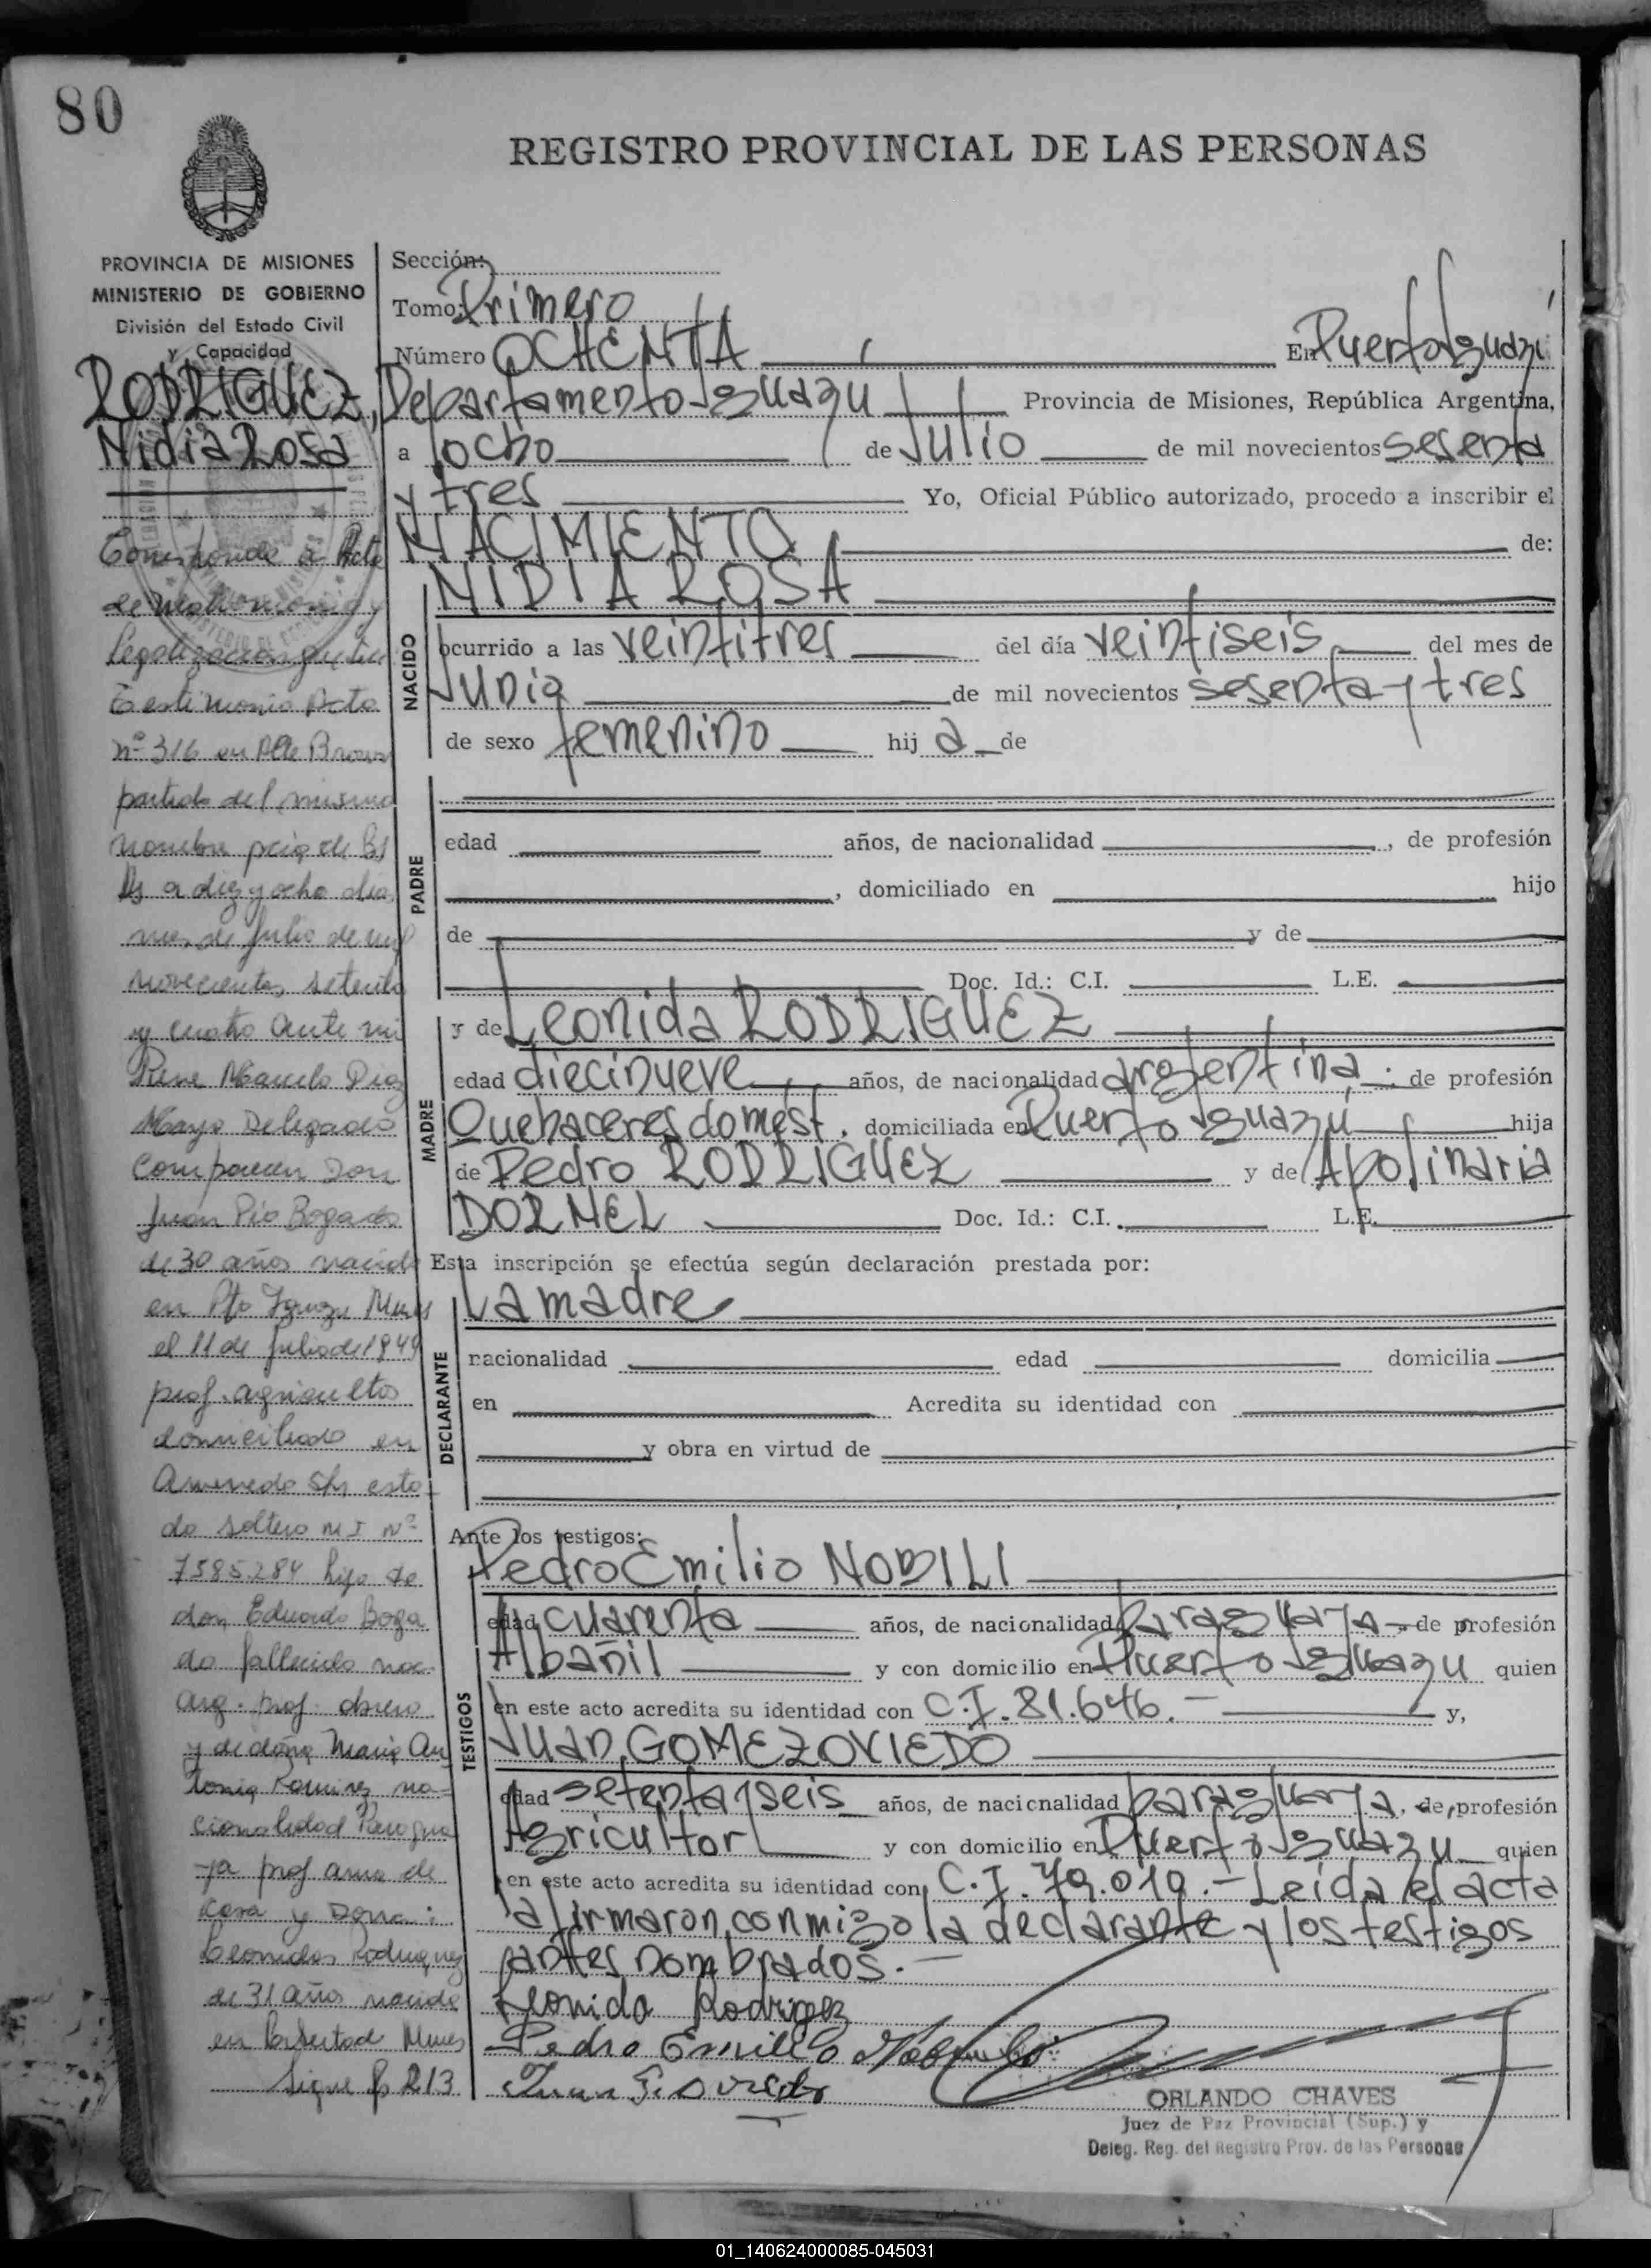 80
REGISTRO PROVINCIAL DE LAS PERSONAS
PROVINCIA DE MISIONES
MINISTERIO DE GOBIERNO
División del Estado Civil
y Capacidad
RODRIGUEZ,
Nidia Rosa
Corresponde a Acta
de Matrimonio y
legalización
Testimonio Acto
nº 316 en Alte Brown
partido del mismo
nombre pcia de Bs
As a diez y ocho días
mes de Julio de mil
novecientos setenta
y cuatro ante mi
Rene Marcelo Diaz
Mayo Delegado
comparecen Don
Juan Pio Bogado
de 30 años nacido
en Pto Iguazu Mnes
el 11 de Julio de 1944
prof. agricultor
domiciliado en
Amenedo S/n esta
do soltero M I Nº
7585.284 hijo de
don Eduardo Boga
do fallecido nac.
arg. prof. obrero
y de doña Maria An
tonia Ramirez na-
cionalidad Paragua
ya prof ama de
casa y Dona:
Leonidas Rodriguez
de 31 años nacida
en Libertad Mnes
Sigue fs 213
Sección:
Tomo: Primero
Número OCHENTA En Puerto Iguazu
Departamento Iguazu Provincia de Misiones, República Argentina,
a ocho de Julio de mil novecientos sesenta
y tres Yo, Oficial Público autorizado, procedo a inscribir el
NACIMIENTO de:
NACIDO
NIDIA ROSA
ocurrido a las veintitres del día veintiseis del mes de
Junio de mil novecientos sesenta y tres
de sexo femenino hij a de
PADRE
edad años, de nacionalidad , de profesión
, domiciliado en hijo
de y de
Doc. Id.: C.I. L.E.
MADRE
y de Leonida RODRIGUEZ
edad diecinueve años, de nacionalidad argentina de profesión
Quehaceres domést. domiciliada en Puerto Iguazu hija
de Pedro RODRIGUEZ y de Apolinaria
DORNEL Doc. Id.: C.I. L.E.
Esta inscripción se efectúa según declaración prestada por:
DECLARANTE
La madre
nacionalidad edad domicilia
en Acredita su identidad con
y obra en virtud de
Ante los testigos:
TESTIGOS
Pedro Emilio NOBILI
edad cuarenta años, de nacionalidad Paraguaya de profesión
Albañil y con domicilio en Puerto Iguazu quien
en este acto acredita su identidad con C.I. 81.646.- y,
JUAN GOMEZ OVIEDO
edad setenta y seis años, de nacionalidad paraguaya, de profesión
Agricultor y con domicilio en Puerto Iguazu quien
en este acto acredita su identidad con C.I. 79.019.- Leída el acta
la firmaron conmigo la declarante y los testigos
antes nombrados.-
Leonida Rodriguez
Pedro Emilio Nobili
ORLANDO CHAVES
Juez de Paz Provincial (Sup.) y
Deleg. Reg. del Registro Prov. de las Personas
01_140624000085-045031